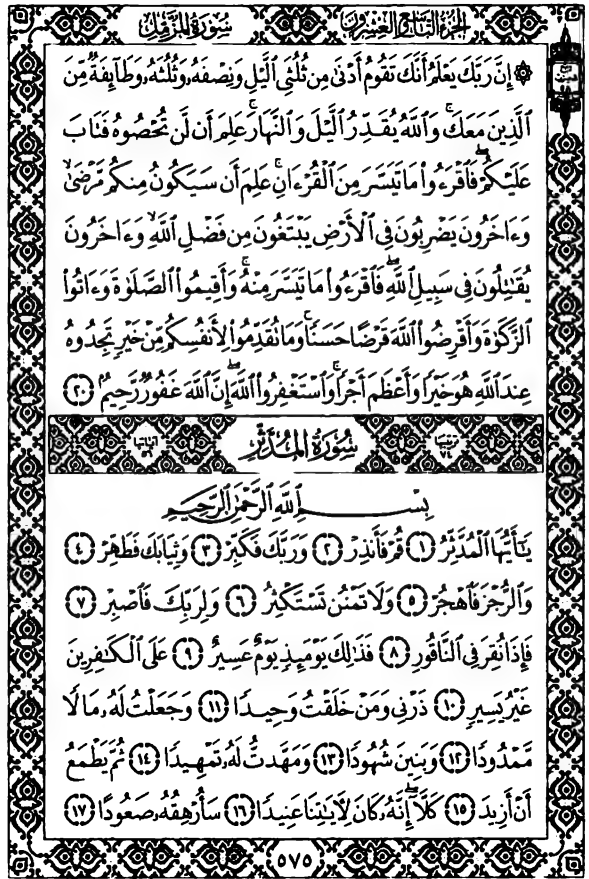 سُورَةُ المُزَّمِّل الجُزْءُ التَّاسِعُ وَالعِشْرُونَ
۞ إِنَّ رَبَّكَ يَعْلَمُ أَنَّكَ تَقُومُ أَدْنَىٰ مِن ثُلُثَيِ ٱلَّيْلِ وَنِصْفَهُۥ وَثُلُثَهُۥ وَطَآئِفَةٌ مِّنَ
ٱلَّذِينَ مَعَكَ ۚ وَٱللَّهُ يُقَدِّرُ ٱلَّيْلَ وَٱلنَّهَارَ ۚ عَلِمَ أَن لَّن تُحْصُوهُ فَتَابَ
عَلَيْكُمْ ۖ فَٱقْرَءُوا۟ مَا تَيَسَّرَ مِنَ ٱلْقُرْءَانِ ۚ عَلِمَ أَن سَيَكُونُ مِنكُم مَّرْضَىٰ ۙ
وَءَاخَرُونَ يَضْرِبُونَ فِى ٱلْأَرْضِ يَبْتَغُونَ مِن فَضْلِ ٱللَّهِ ۙ وَءَاخَرُونَ
يُقَـٰتِلُونَ فِى سَبِيلِ ٱللَّهِ ۖ فَٱقْرَءُوا۟ مَا تَيَسَّرَ مِنْهُ ۚ وَأَقِيمُوا۟ ٱلصَّلَوٰةَ وَءَاتُوا۟
ٱلزَّكَوٰةَ وَأَقْرِضُوا۟ ٱللَّهَ قَرْضًا حَسَنًا ۚ وَمَا تُقَدِّمُوا۟ لِأَنفُسِكُم مِّنْ خَيْرٍ تَجِدُوهُ
عِندَ ٱللَّهِ هُوَ خَيْرًا وَأَعْظَمَ أَجْرًا ۚ وَٱسْتَغْفِرُوا۟ ٱللَّهَ ۖ إِنَّ ٱللَّهَ غَفُورٌ رَّحِيمٌۢ ٢٠
ترتيبها ٧٤ سُورَةُ المُدَّثِّر آياتها ٥٦
بِسْمِ ٱللَّهِ ٱلرَّحْمَـٰنِ ٱلرَّحِيمِ
يَـٰٓأَيُّهَا ٱلْمُدَّثِّرُ ١ قُمْ فَأَنذِرْ ٢ وَرَبَّكَ فَكَبِّرْ ٣ وَثِيَابَكَ فَطَهِّرْ ٤
وَٱلرُّجْزَ فَٱهْجُرْ ٥ وَلَا تَمْنُن تَسْتَكْثِرُ ٦ وَلِرَبِّكَ فَٱصْبِرْ ٧
فَإِذَا نُقِرَ فِى ٱلنَّاقُورِ ٨ فَذَٰلِكَ يَوْمَئِذٍ يَوْمٌ عَسِيرٌ ٩ عَلَى ٱلْكَـٰفِرِينَ
غَيْرُ يَسِيرٍ ١٠ ذَرْنِى وَمَنْ خَلَقْتُ وَحِيدًا ١١ وَجَعَلْتُ لَهُۥ مَالًا
مَّمْدُودًا ١٢ وَبَنِينَ شُهُودًا ١٣ وَمَهَّدتُّ لَهُۥ تَمْهِيدًا ١٤ ثُمَّ يَطْمَعُ
أَنْ أَزِيدَ ١٥ كَلَّآ ۖ إِنَّهُۥ كَانَ لِـَٔايَـٰتِنَا عَنِيدًا ١٦ سَأُرْهِقُهُۥ صَعُودًا ١٧
٥٧٥